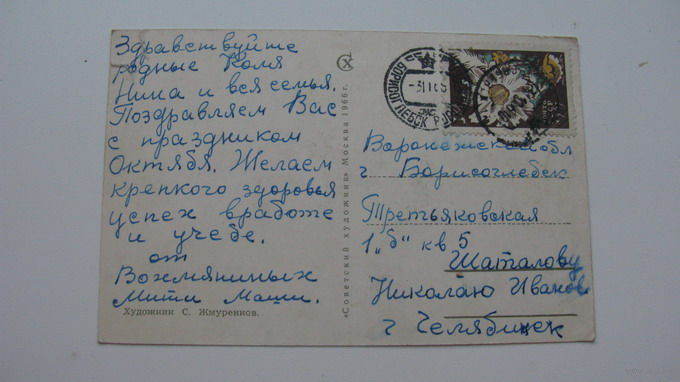 Здравствуйте
родные Коля
Нина и вся семья.
Поздравляем Вас
с праздником
Октября. Желаем
крепкого здоровья
успех в работе
и учебе.
от
Вохмяниных
Мити Маши.
Художник С. Жмуренков.
«Советский художник» Москва 1966 г.
Воронежская обл
г Борисоглебск
Третьяковская
1 „б" кв 5
Шаталову
Николаю Иванов
г Челябинск